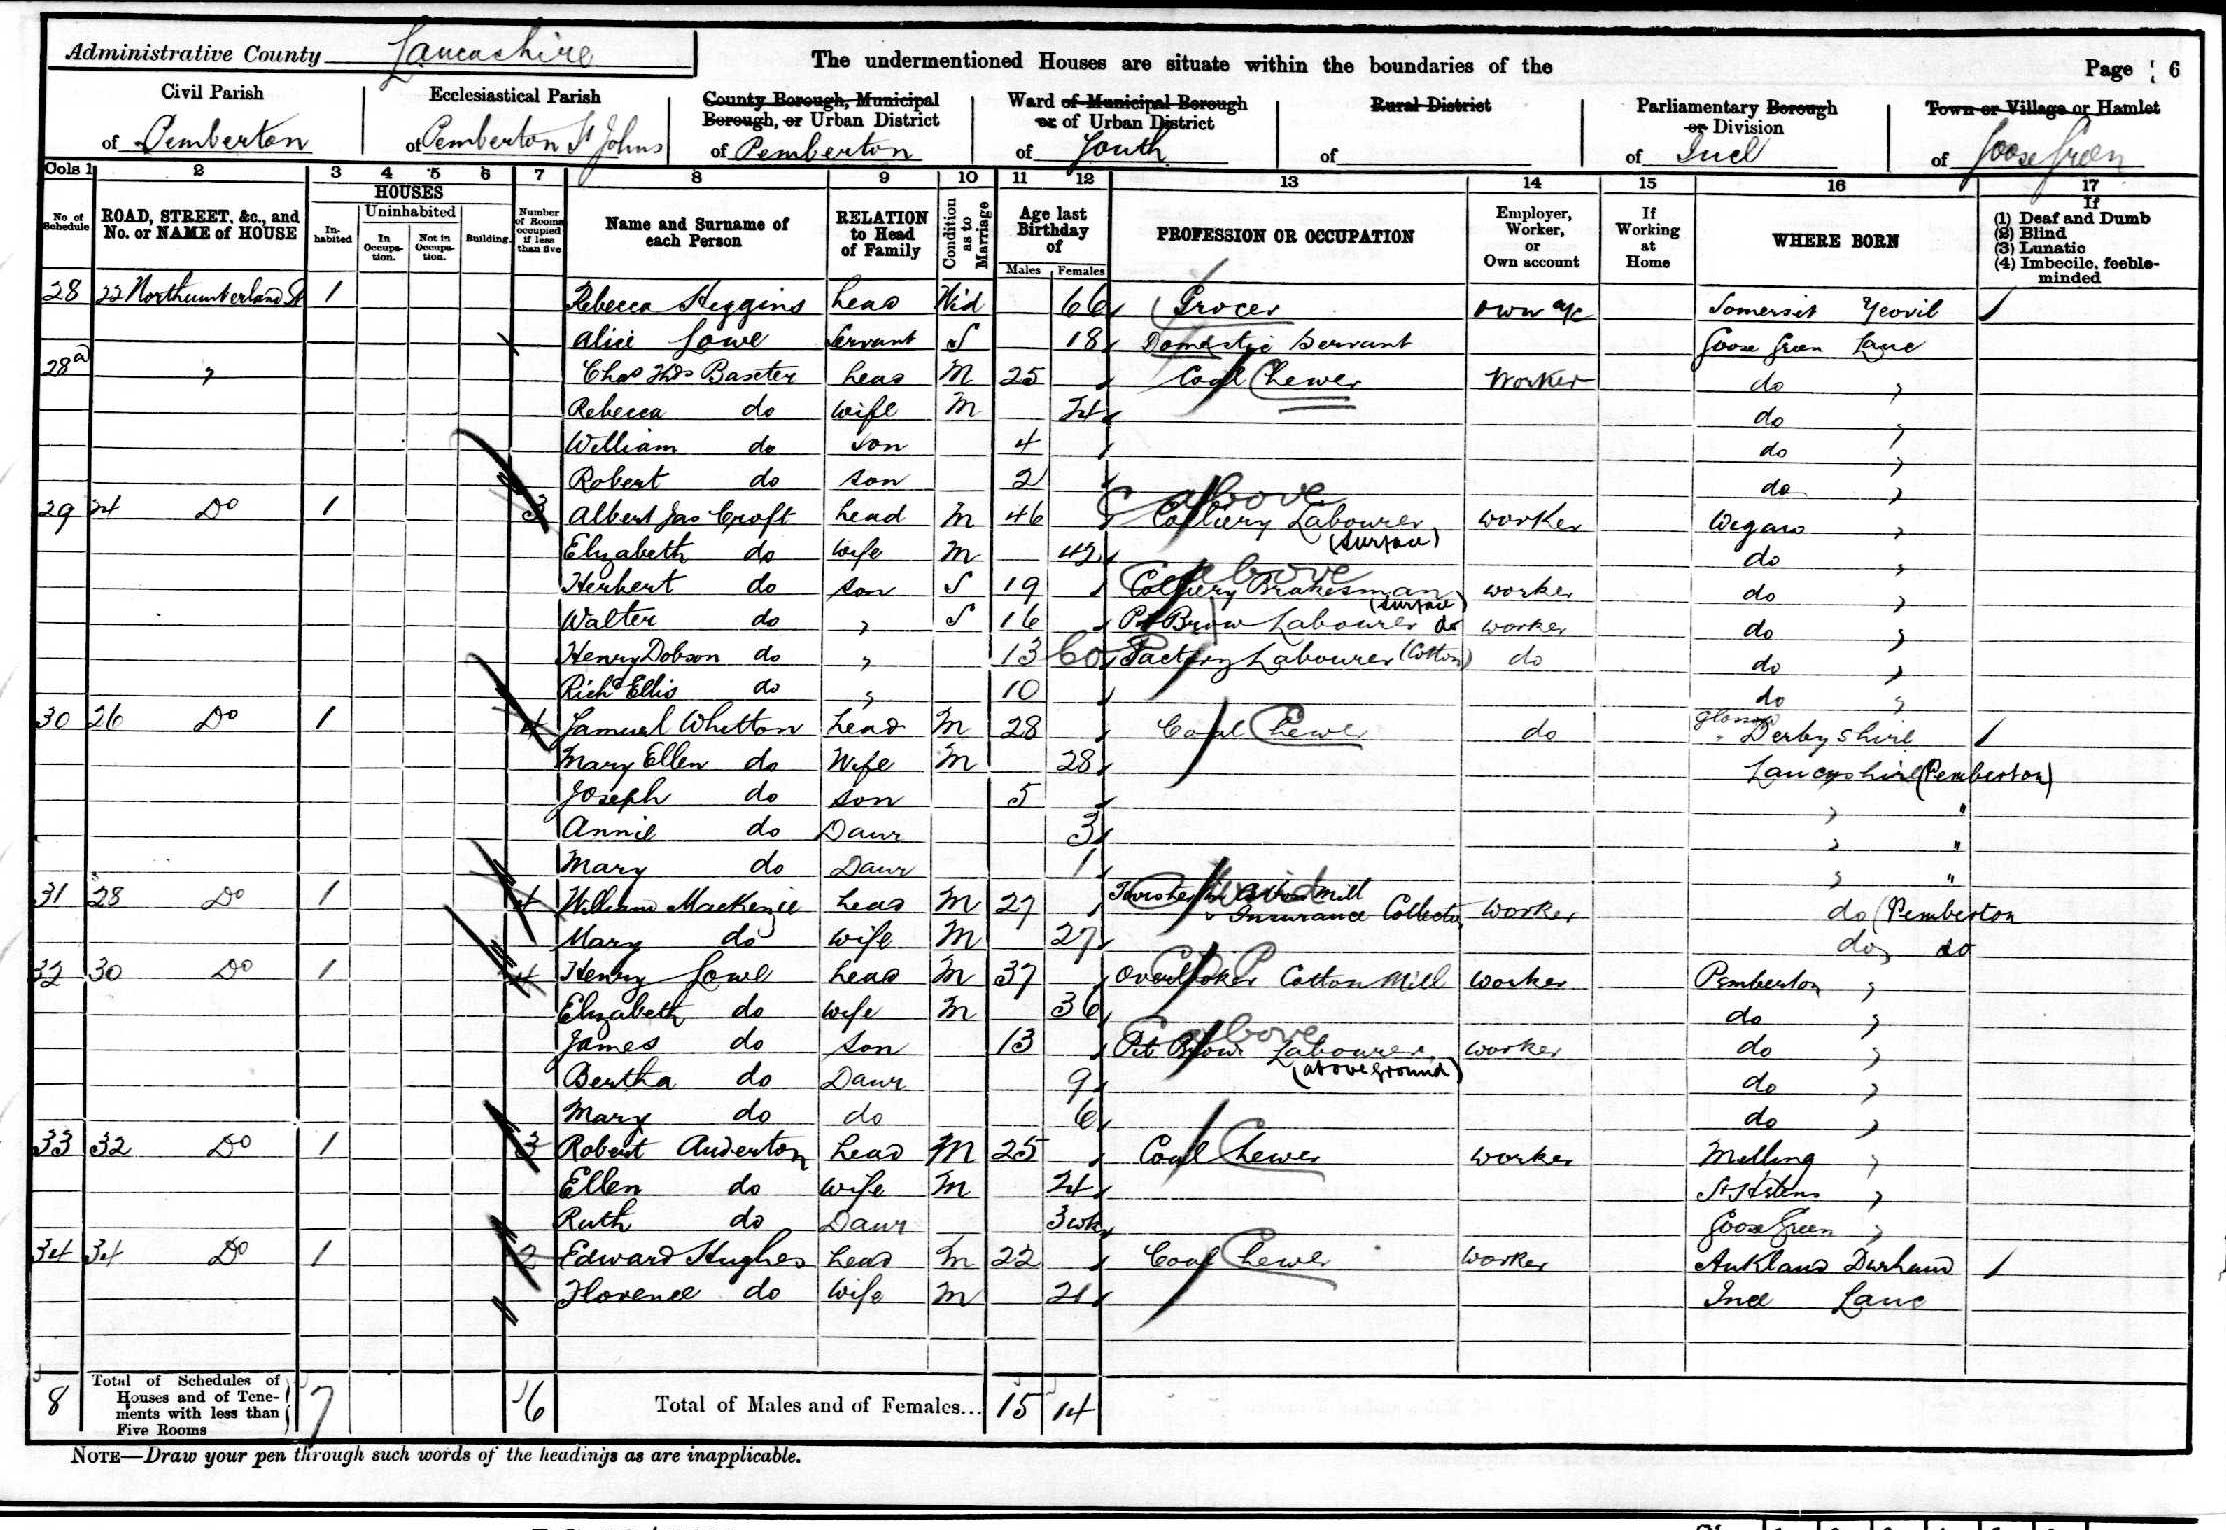 Administrative County Lancashire
The undermentioned Houses are situate within the boundaries of the
Page 6
Civil Parish of Pemberton
Ecclesiastical Parish of Pemberton St Johns
County Borough, Municipal Borough, or Urban District of Pemberton
Ward of Municipal Borough or of Urban District of South
Rural District of
Parliamentary Borough or Division of Ince
Town or Village or Hamlet of Goose Green
Cols 1 2 3 4 5 6 7 8 9 10 11 12 13 14 15 16 17
No. of Schedule
ROAD, STREET, &c., and No. or NAME of HOUSE
HOUSES
Inhabited
Uninhabited
In Occupation.
Not in Occupation.
Building.
Number of Rooms occupied if less than five
Name and Surname of each Person
RELATION to Head of Family
Condition as to Marriage
Age last Birthday of
Males Females
PROFESSION OR OCCUPATION
Employer, Worker, or Own account
If Working at Home
WHERE BORN
If
(1) Deaf and Dumb
(2) Blind
(3) Lunatic
(4) Imbecile, feeble-minded
28 22 Northumberland St 1 Rebecca Higgins head Wid 66 Grocer own a/c Somerset Yeovil
Alice Lowe Servant S 18 Domestic Servant Goose Green Lanc
28a " Chas Thos Baxter head M 25 Coal Hewer Worker do "
Rebecca do wife M 24 do "
William do son 4 do "
Robert do son 2 do "
above
29 24 Do 1 3 Albert Jas Croft head M 46 Colliery Labourer (surface) worker Wigan "
Elizabeth do wife M 42 do "
above
Herbert do son S 19 Colliery Brakesman (surface) worker do "
Walter do " S 16 Pit Brow Labourer do worker do "
Henry Dobson do " 13 Factory Labourer (Cotton) do do "
Richd Ellis do " 10 do "
30 26 Do 1 4 Samuel Whitton head M 28 Coal Hewer do Derbyshire
Mary Ellen do Wife M 28 Lancashire (Pemberton)
Joseph do son 5 " "
Annie do Daur 3 " "
Mary do Daur 1 " "
31 28 Do 1 4 William MacKenzie head M 27 Cotton Mill Insurance Collector worker do (Pemberton
Mary do wife M 27 do do
32 30 Do 1 4 Henry Lowe head M 37 Overlooker Cotton Mill worker Pemberton "
Elizabeth do wife M 36 do "
above
James do son 13 Pit Brow Labourer (above ground) worker do "
Bertha do Daur 9 do "
Mary do do 6 do "
33 32 Do 1 3 Robert Anderton head M 25 Coal Hewer worker Melling "
Ellen do wife M 24 St Helens "
Ruth do Daur 3 wks Goose Green "
34 34 Do 1 2 Edward Hughes head M 22 Coal Hewer worker Aukland Durham
Florence do wife M 21 Ince Lanc
8 Total of Schedules of Houses and of Tenements with less than Five Rooms 7 6 Total of Males and of Females... 15 14
NOTE—Draw your pen through such words of the headings as are inapplicable.